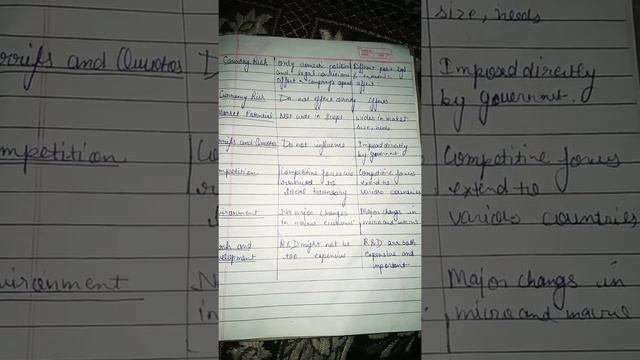 size, needs
Imposed directly
by governmt.
Competitive forces
extend to
various countries
Major changs in
micro and macro
rrifs and Quotas
mpetition
vironment
Country Risk
Only domestic political
and legal conditions
effect company's
Different political
economic
affect
Currency Risk
Do not effect directly
Effects
Market Potential
Not wide in scope
wider in market
size, needs
rrifs and Quotas
Do not influence
Imposed directly
by governmt
mpetition
Competitive forces are
restricted to
local boundary
Competitive forces
extend to
various countries
vironment
No major changes
in macro
Major changs in
micro and macro
and
velopment
R&D might not be
too expensive
R&D are both
expensive and
important